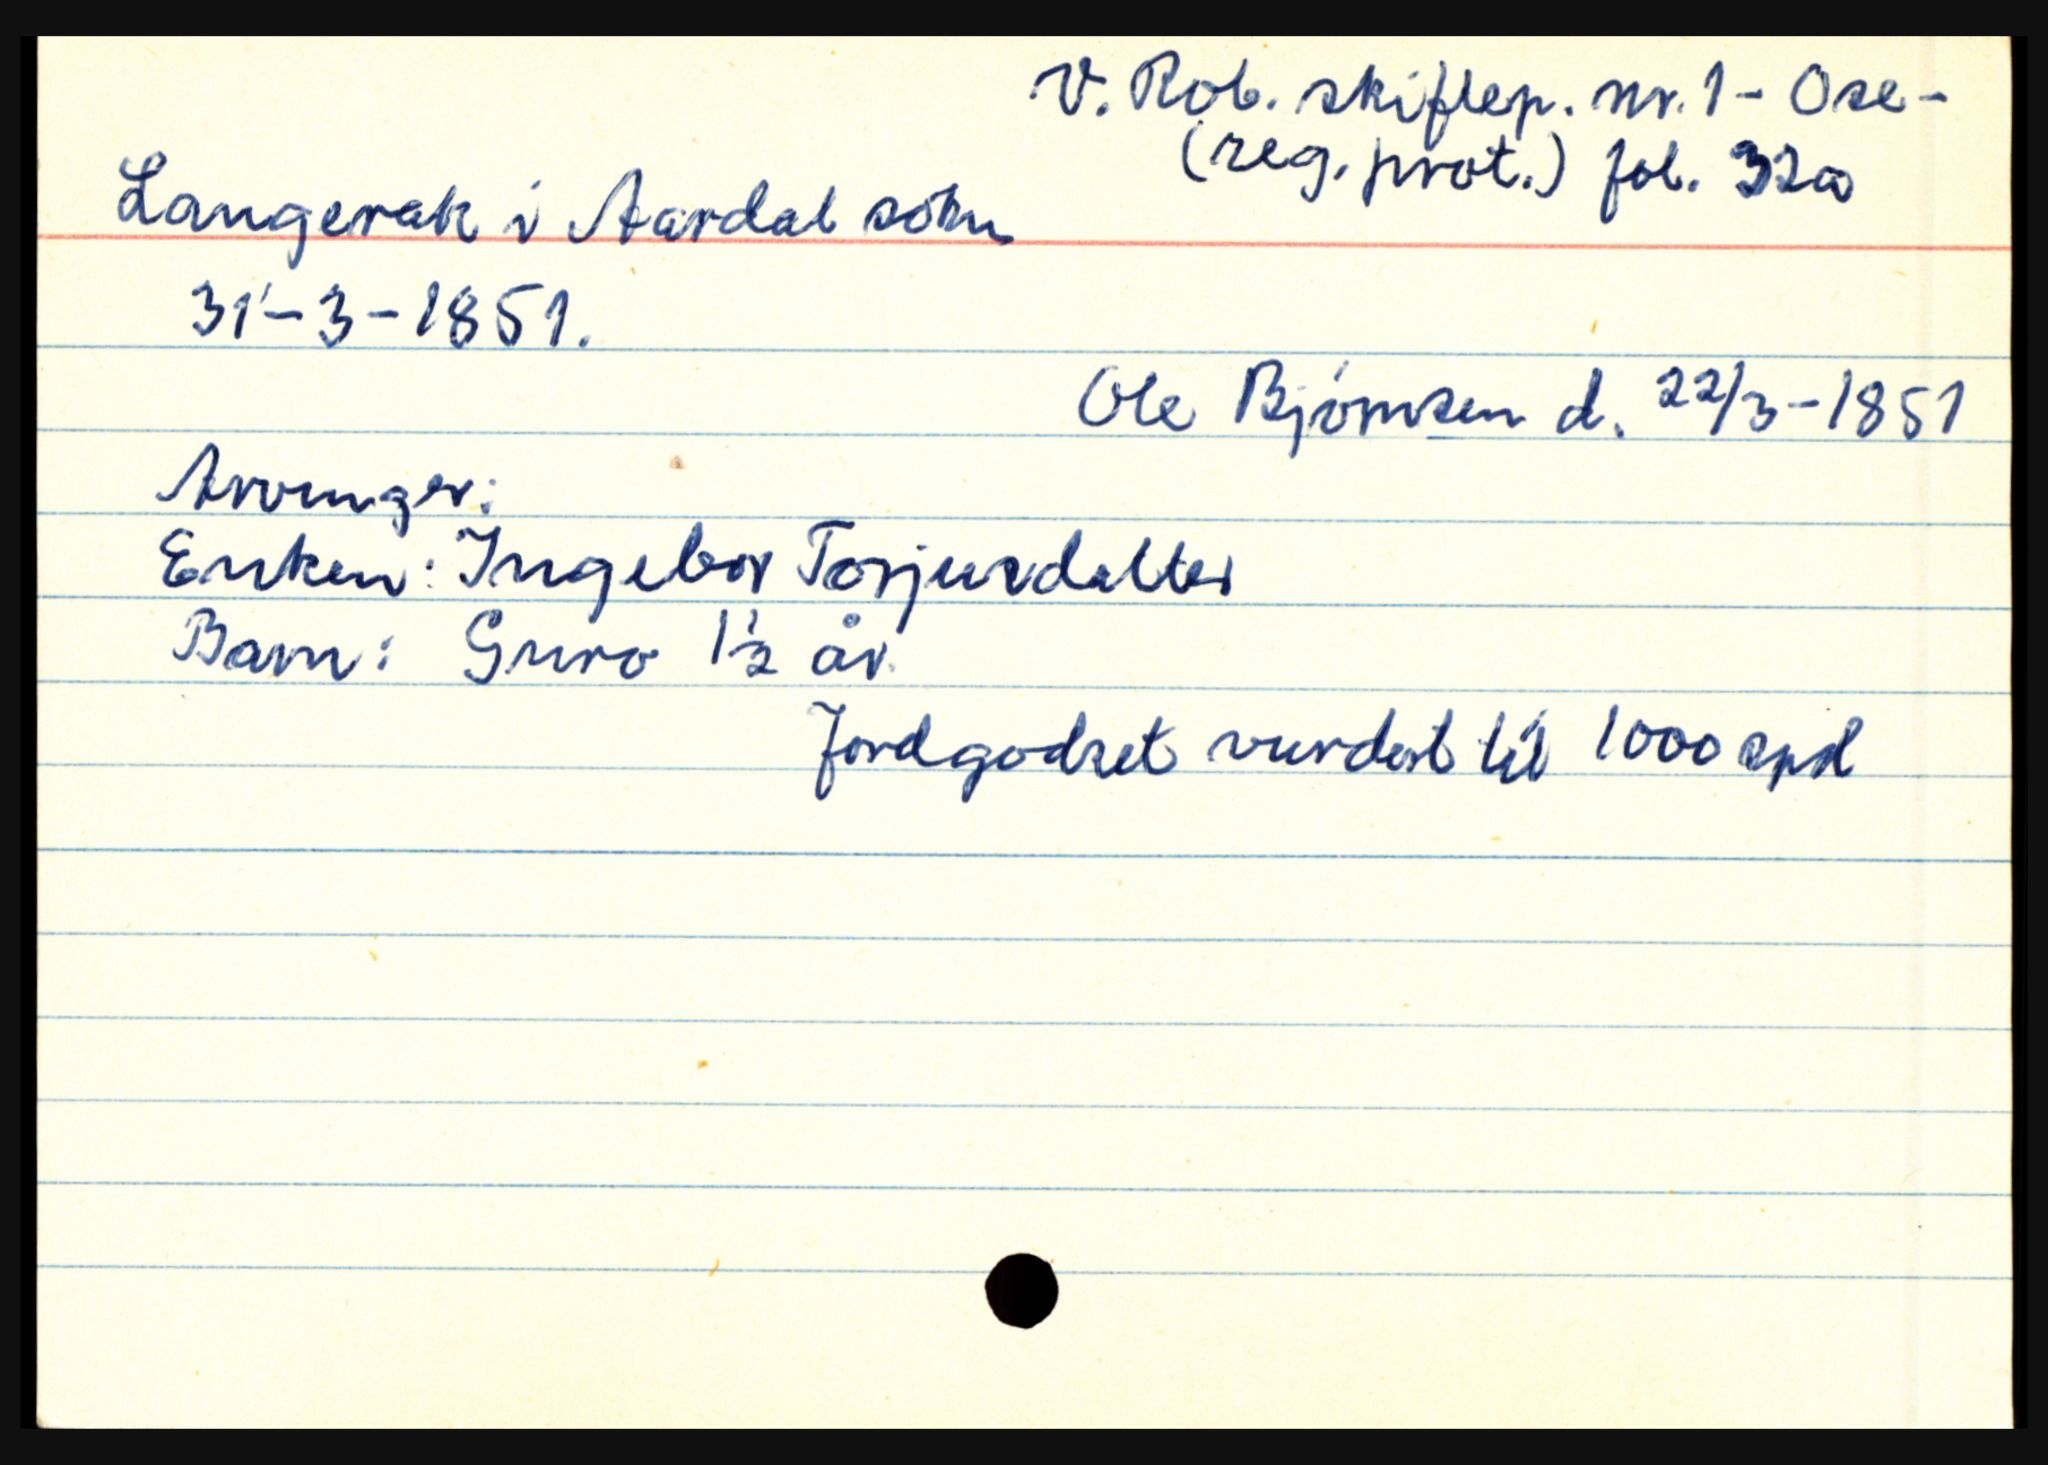 V. Rob. skiftep. nr. 1 - Ose -
(reg. prot.) fol. 32a
Langerak i Aardal sokn
31-3-1851.
Ole Bjørnsen d. 22/3-1851
Arvinger:
Enken: Ingebor Torjusdatter
Barn: Guro 1½ år.
Jordgodset vurdert til 1000 spd